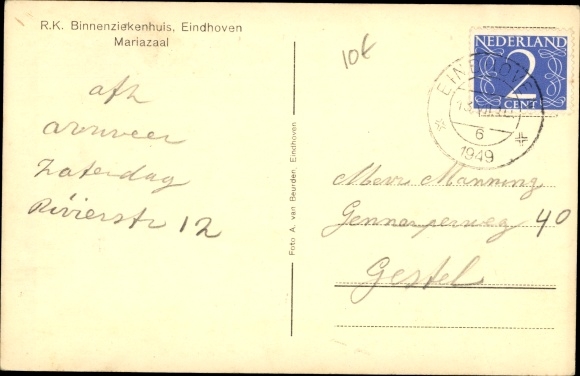 R.K. Binnenziekenhuis, Eindhoven
Mariazaal
afz
Zaterdag
Rivierstr 12
Foto A. van Beurden, Eindhoven
10€
NEDERLAND
2
CENT
EINDHOVEN
6
1949
Mevr Manning
Gennarperweg 40
Gestel